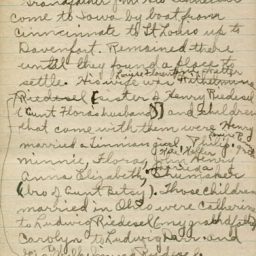 come to Iowa by boat from
Cinncinnate to St Louis up to
Davenport. Remained there
until they found a place to
settle. His wife was Wilhelmina
Riedesel [sister to Henry Riedesel
(Aunt Floras husband)] and children
that came with them were Henry
married a Zimman girl, Philip,
Minnie, Flora, John Henry
Anna Elizabeth,
(bro of Aunt Betsy). Those children
married in Ohio were Catherine
to Ludwig Riedesel (my grandfather)
Carolyn to Ludwig and